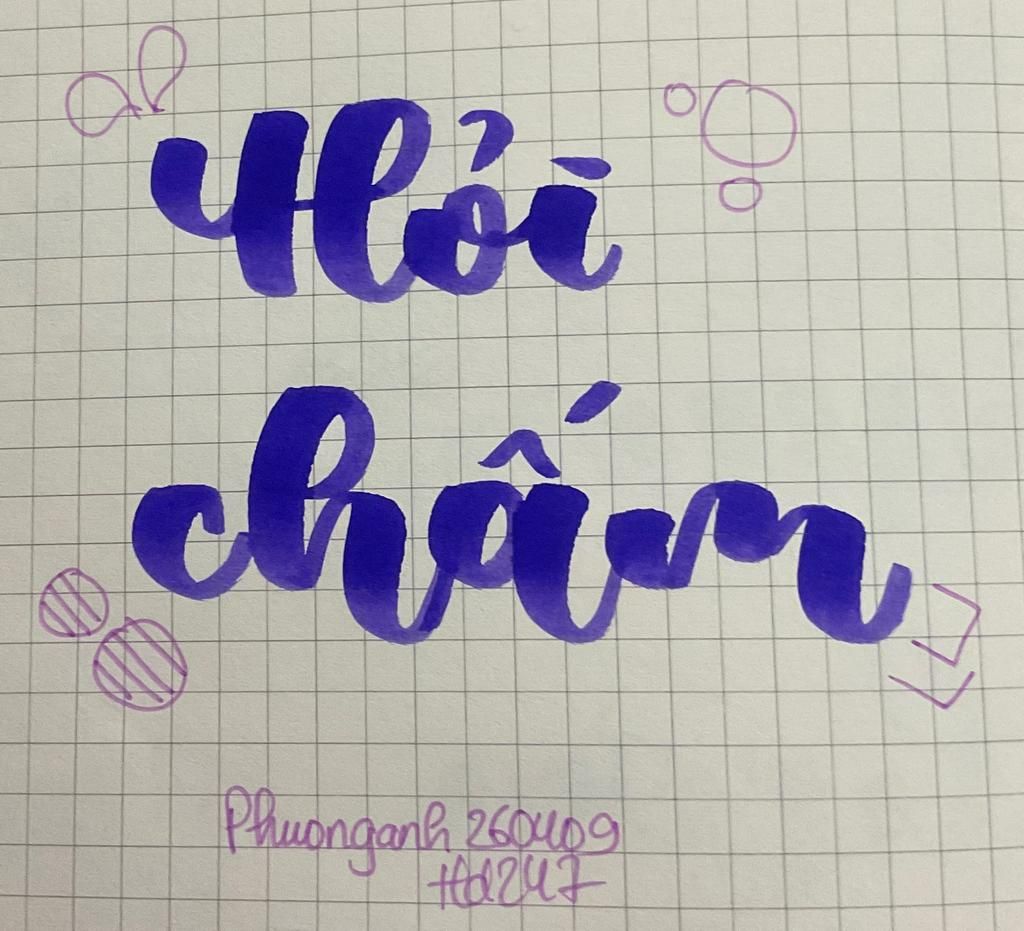 Hỏi
chấm
Phuonganh 260409
Hd247